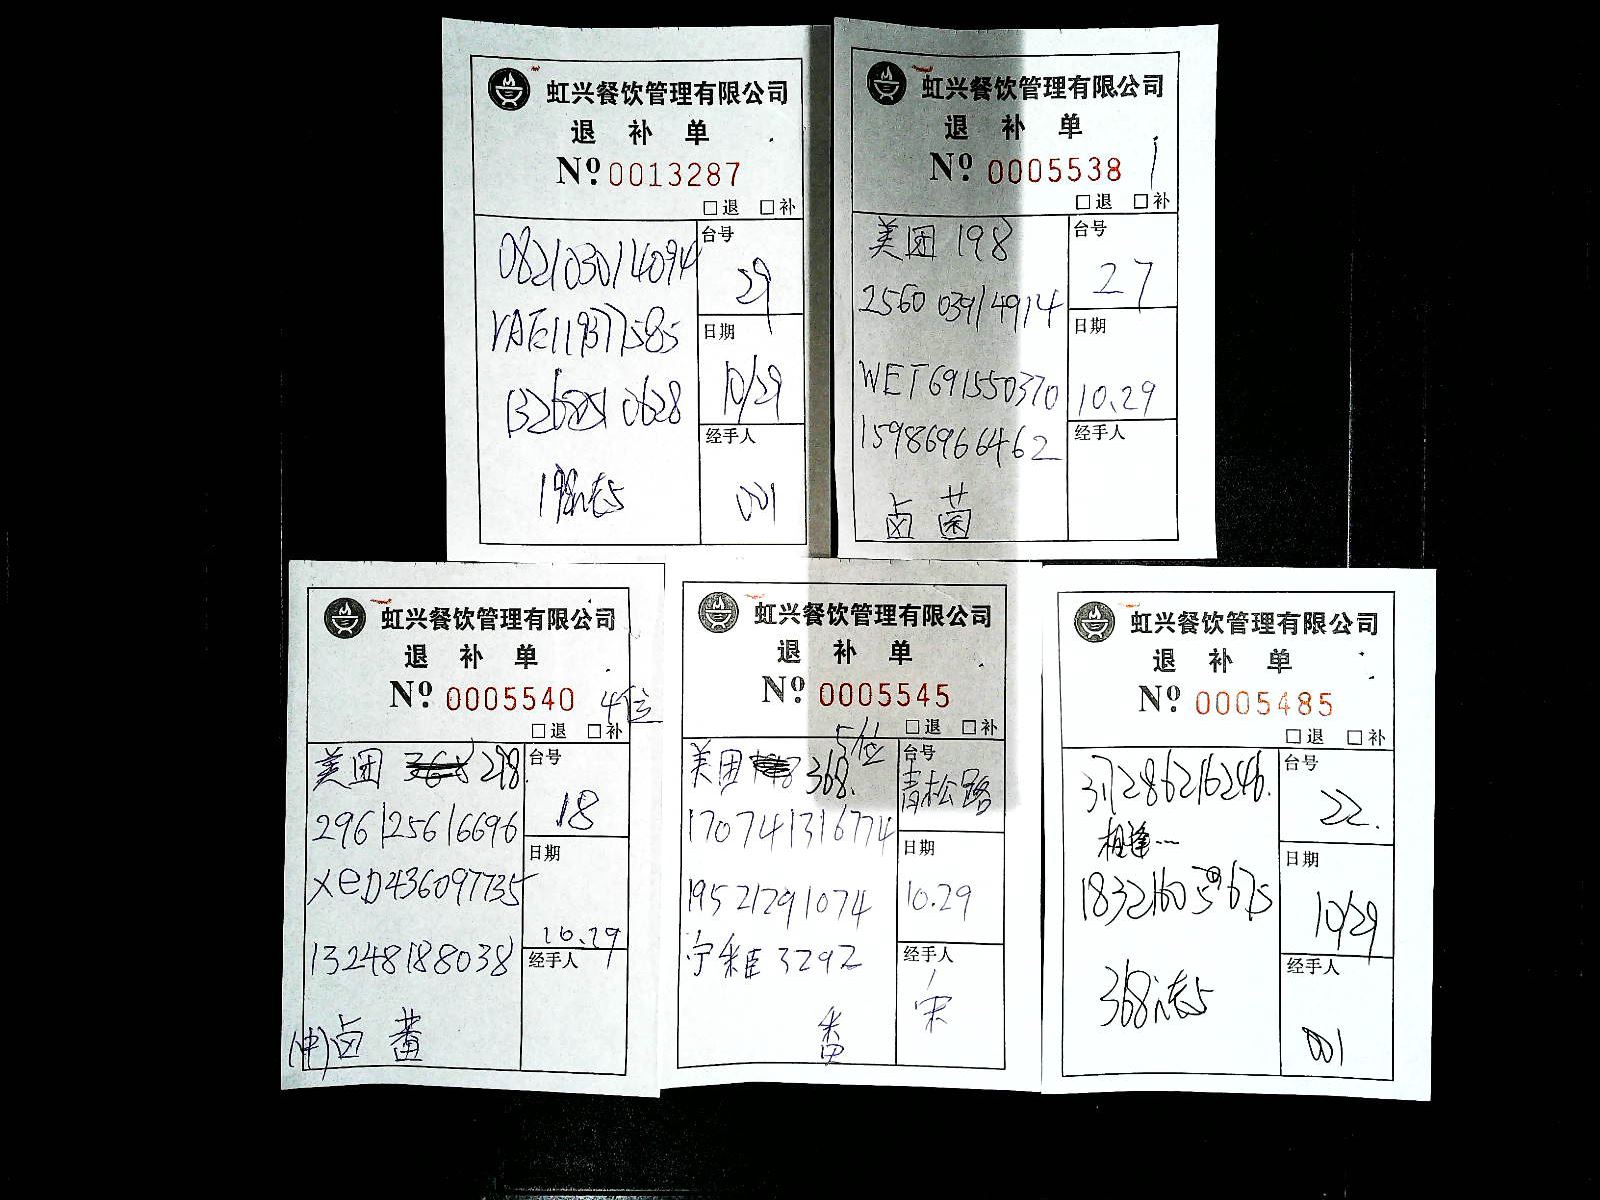 虹兴餐饮管理有限公司
退 补 单
Nº 0013287
□退 □补
台号
29
日期
10/29
经手人
001
082103014094
VAE119377585
虹兴餐饮管理有限公司
退 补 单
Nº 0005538
□退 □补
美团 198
2560 03914914
WET691550370
15986966462
卤 菌
台号
27
日期
10.29
经手人
虹兴餐饮管理有限公司
退 补 单
Nº 0005540 4位
□退 □补
美团 298
296125616696
XeD436097735
13248188038
(中)卤
台号
18
日期
10.29
经手人
虹兴餐饮管理有限公司
退 补 单
Nº 0005545
5位
□退 □补
美团 368.
170741316774
19521291074
3292
台号
青松路
日期
10.29
经手人
宋
虹兴餐饮管理有限公司
退 补 单
Nº 0005485
□退 □补
317286216246.
相逢…
台号
22.
日期
10/29
经手人
001